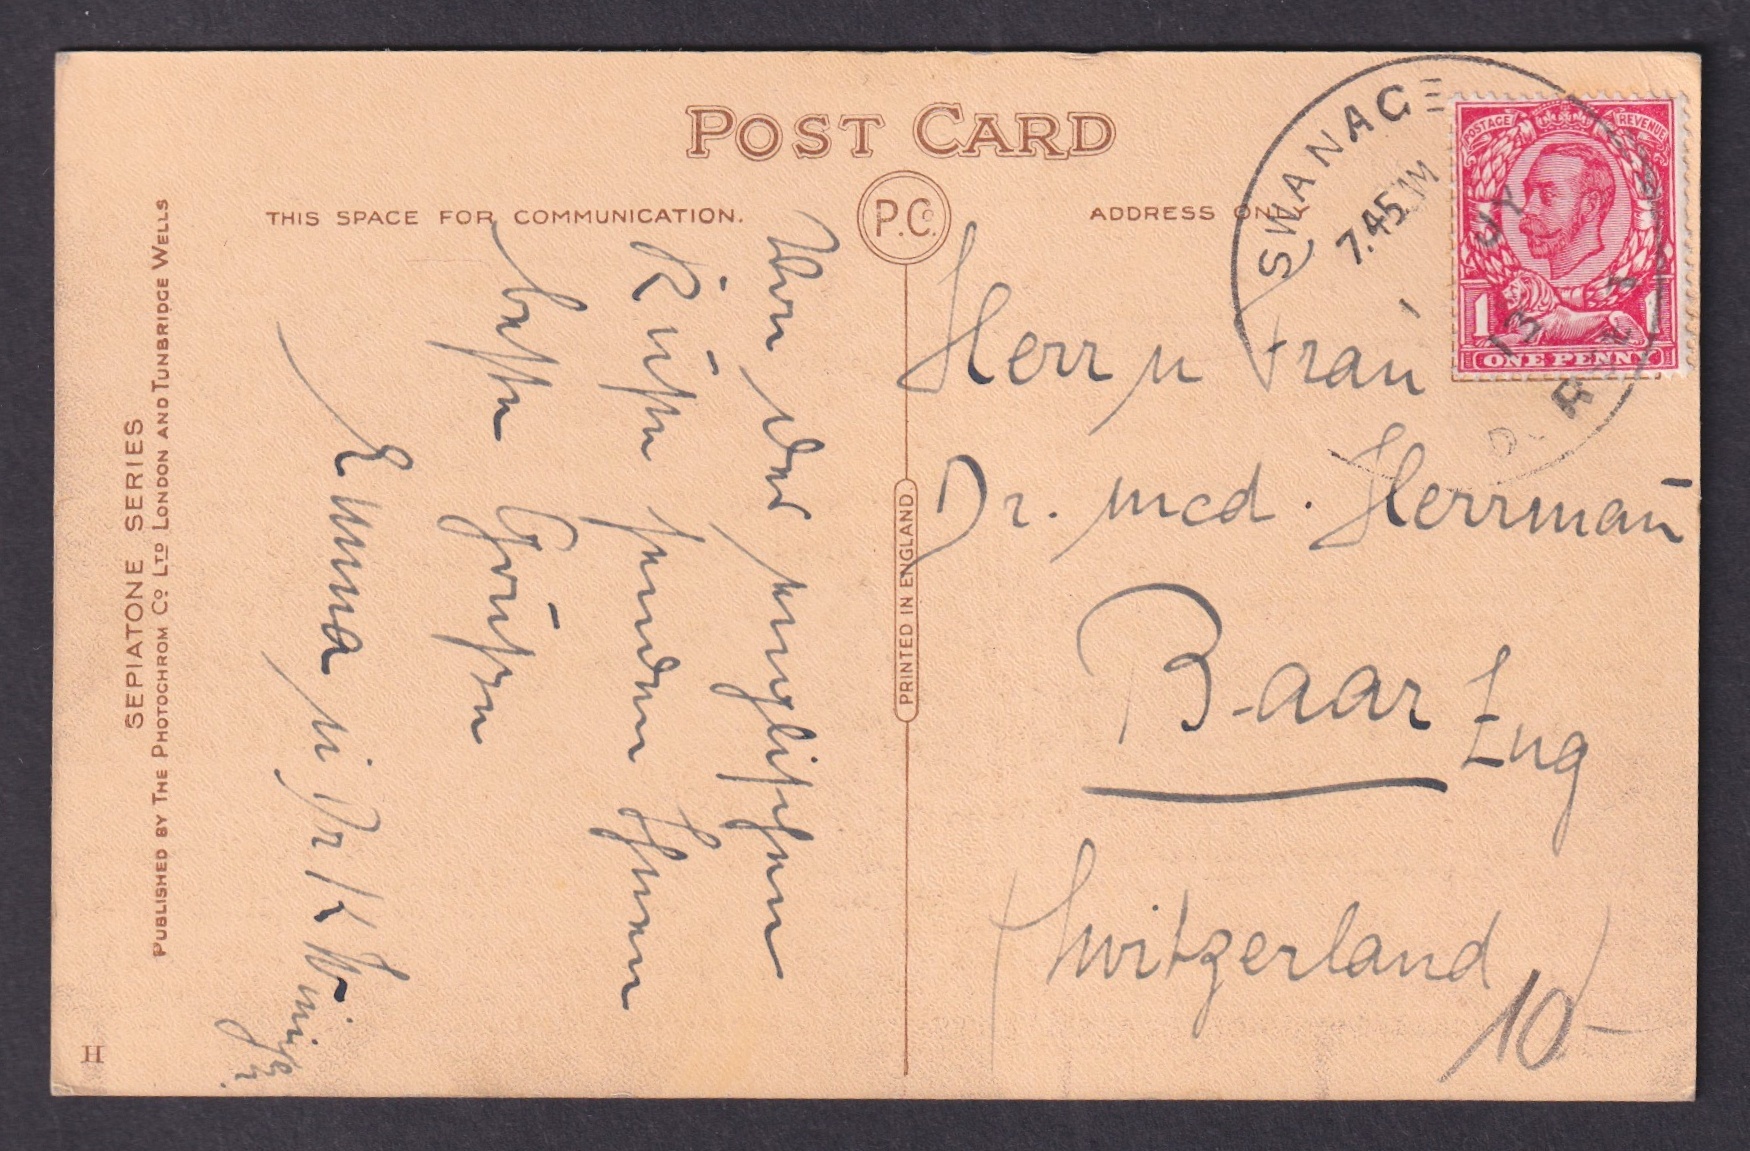 POST CARD
THIS SPACE FOR COMMUNICATION.
P.Co.
ADDRESS ONLY
SWANAGE
7.45
JY
13
POSTAGE
REVENUE
1
1
ONE PENNY
Von der englischen
Küste senden Ihnen
beste Grüsse
Emma u Dr K
Herr u Frau
Dr. med. Herrmañ
Baar Zug
Switzerland
10-
PRINTED IN ENGLAND.
SEPIATONE SERIES
PUBLISHED BY THE PHOTOCHROM Co LTD LONDON AND TUNBRIDGE WELLS
H